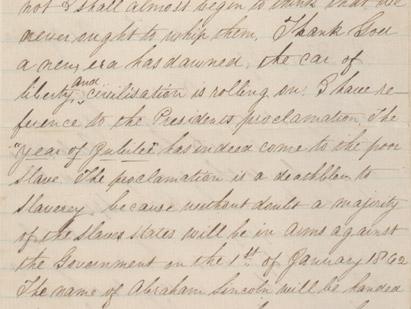 not I shall almost begin to think that we
never ought to whip them. Thank God
a new era has dawned, the car of
liberty and civilisation is rolling on. I have re-
ference to the Presidents proclamation. The
"year of Jubilee" has indeed come to the poor
Slave. The proclamation is a deathblow to
Slavery, because without doubt a majority
of the Slave States will be in Arms against
the Government on the 1st of January 1862
The name of Abraham Lincoln will be handed